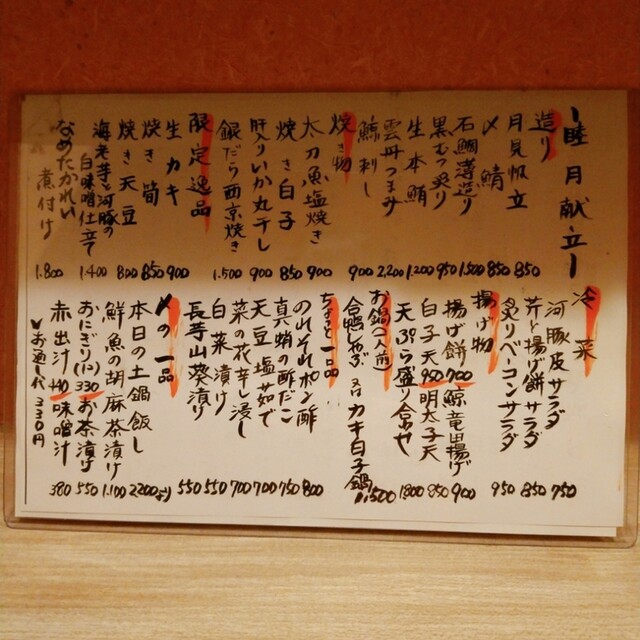 睦月献立
造り
月見帆立 850
〆鯖 850
石鯛薄造り 1.500
黒むつ炙り 950
生本鮪 1.200
雲丹つまみ 2,200
鯨刺し 900
焼き物
太刀魚塩焼き 900
焼き白子 850
肝入りいか丸干し 900
銀だら西京焼き 1.500
限定逸品
生カキ 900
焼き筍 850
焼き天豆 800
海老芋と河豚の白味噌仕立て 1.400
なめたかれい煮付け 1.800
冷菜
河豚皮サラダ 750
芹と揚げ餅サラダ 850
炙りベーコンサラダ 950
揚げ物
揚げ餅700 鯨竜田揚げ 900
白子天950 明太子天 850
天ぷら盛り合わせ 1800
お鍋(1人前)
合鴨しゃぶ 又は カキ白子鍋 1,500
ちょっと一品
のれそれポン酢 800
真蛸の酢だこ 750
天豆塩茹で 700
菜の花辛し浸し 700
白菜漬け 550
長芋山葵漬け 550
〆の一品
本日の土鍋飯し 2200より
鮮魚の胡麻茶漬け 1.100
おにぎり(1コ)330 お茶漬け 550
赤出汁440 味噌汁 380
お通し代330円